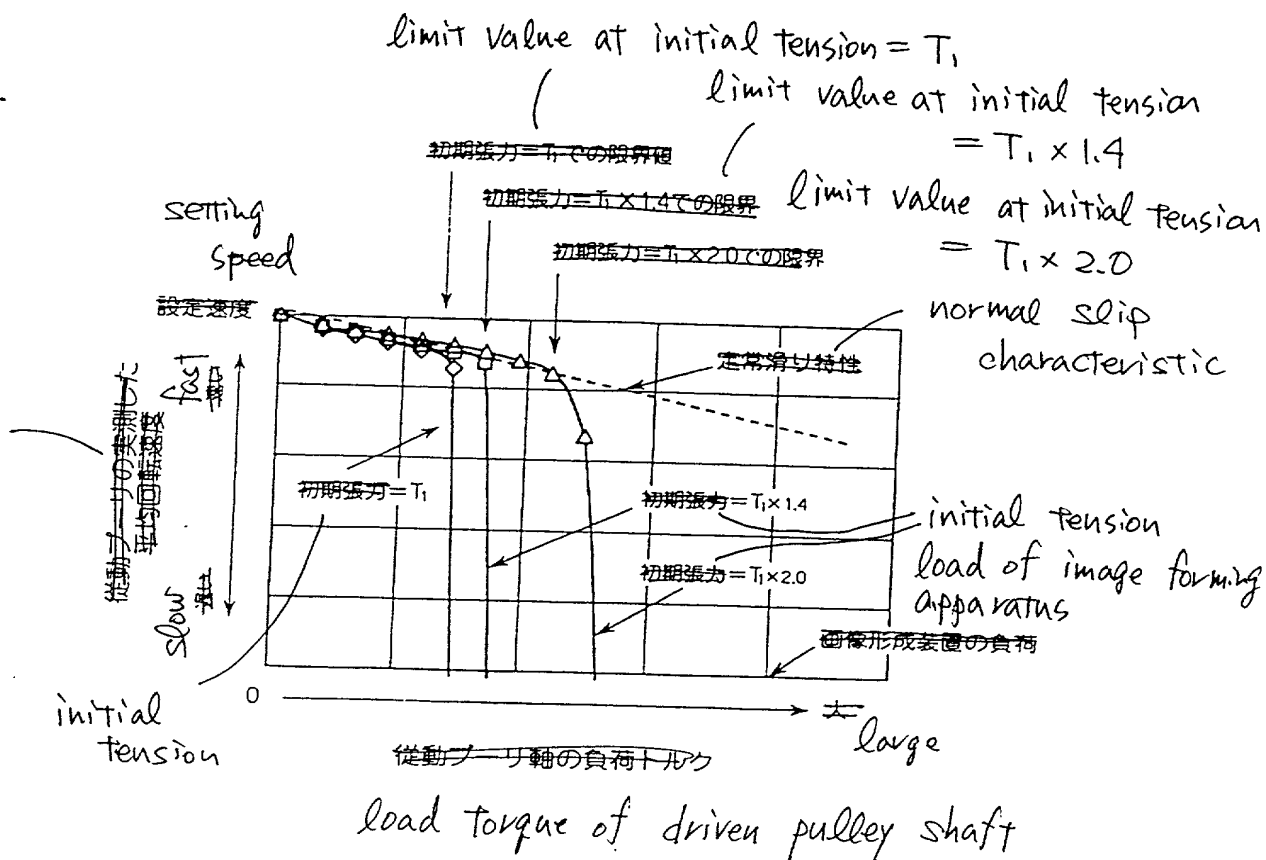 limit value at initial tension = T₁
limit value at initial tension
= T₁ × 1.4
初期張力=T₁での限界値
初期張力=T₁×1.4での限界
limit value at initial tension
= T₁ × 2.0
初期張力=T₁×2.0での限界
setting
speed
設定速度
normal slip
characteristic
定常滑り特性
従動プーリの実測した
平均回転速度
fast
速い
slow
遅い
初期張力=T₁
初期張力=T₁×1.4
初期張力=T₁×2.0
initial tension
load of image forming
apparatus
画像形成装置の負荷
0
大
large
initial
tension
従動プーリ軸の負荷トルク
load torque of driven pulley shaft